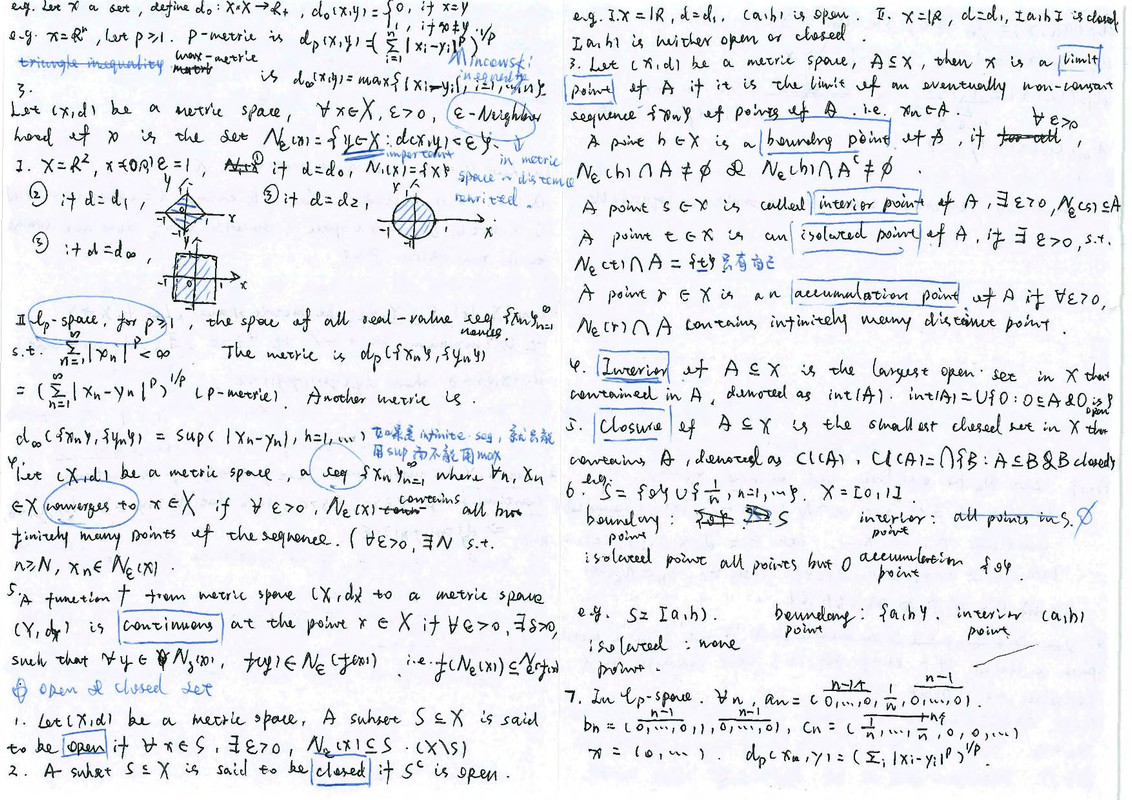 e.g. Let X a set, define d₀: X×X→R₊, d₀(x,y)={0, if x=y
1, if x≠y
e.g. X=Rⁿ, let p≥1. p-metric is dₚ(x,y)=(∑ⁿᵢ₌₁|xᵢ-yᵢ|ᵖ)^{1/p}
triangle inequality max-metric Mincowski inequality
is d∞(x,y)=max{|xᵢ-yᵢ|, i=1,...,n}.
3.
Let (X,d) be a metric space, ∀x∈X, ε>0, ε-Neighbor
hood of x is the set Nε(x)={y∈X: d(x,y)<ε}.
important in metric
I. X=R², x=(0,0) ε=1, ① if d=d₀, N₁(x)={x} space ~ distance
② if d=d₁, ③ if d=d₂, rewrited.
③ if d=d∞,
II lₚ-space, for p≥1, the space of all real-value sequences {xₙ}^∞ₙ₌₁
s.t. ∑ⁿₙ₌₁|xₙ|ᵖ<∞ The metric is dₚ({xₙ},{yₙ})
=(∑^∞ₙ₌₁|xₙ-yₙ|ᵖ)^{1/p} (p-metric). Another metric is.
d∞({xₙ},{yₙ})=sup(|xₙ-yₙ|, n=1,...) 如果是infinite seq, 就只能
用sup而不能用max
4. Let (X,d) be a metric space, a seq {xₙ}^∞ₙ₌₁ where ∀n, xₙ
∈X converges to x∈X if ∀ε>0, Nε(x) contains all but
finitely many points of the sequence. (∀ε>0, ∃N s.t.
n≥N, xₙ∈Nε(x).
5. A function f from metric space (X,dx) to a metric space
(Y,dy) is continuous at the point x∈X if ∀ε>0, ∃δ>0,
such that ∀y∈Nδ(x), f(y)∈Nε(f(x)) i.e. f(Nδ(x))⊆Nε(f(x))
open & closed set
1. Let (X,d) be a metric space, A subset S⊆X is said
to be open if ∀x∈S, ∃ε>0, Nε(x)⊆S. (X\S)
2. A subset S⊆X is said to be closed if Sᶜ is open.
e.g. I. X=R, d=d₁, (a,b) is open. II. X=R, d=d₁, [a,b] is closed
[a,b) is neither open or closed.
3. Let (X,d) be a metric space, A⊆X, then x is a limit
point of A if it is the limit of an eventually non-constant
sequence {xₙ} of points of A. i.e. xₙ∈A.
A point b∈X is a boundry point of A, if for all, ∀ε>0
Nε(b)∩A≠∅ & Nε(b)∩Aᶜ≠∅.
A point s∈X is called interior point of A, ∃ε>0, Nε(s)⊆A
A point t∈X is an isolated point of A, if ∃ε>0, s.t.
Nε(t)∩A={t} 只有自己
A point r∈X is an accumulation point of A if ∀ε>0,
Nε(r)∩A contains infinitely many distinct point.
4. Interior of A⊆X is the largest open set in X that
contained in A, denoted as int(A). int(A)=∪{O: O⊆A & O is open}
5. Closure of A⊆X is the smallest closed set in X that
contains A, denoted as Cl(A). Cl(A)=∩{B: A⊆B & B closed}
e.g.
6. S={0}∪{1/n, n=1,...}. X=[0,1].
boundary point: S interior: all points in S. ∅
isolated point all points but 0 accumulation point {0}.
e.g. S=[a,b). boundary point: {a,b}. interior point (a,b)
isolated point: none
7. In lₚ-space. ∀n, aₙ=(0,...,0,1/n,0,...,0).
bₙ=(0,...,0,1,0,...,0), cₙ=(1/n,...,1/n,0,0,...)
x=(0,...). dₚ(xₘ,y)=(∑ᵢ|xᵢ-yᵢ|ᵖ)^{1/p}.